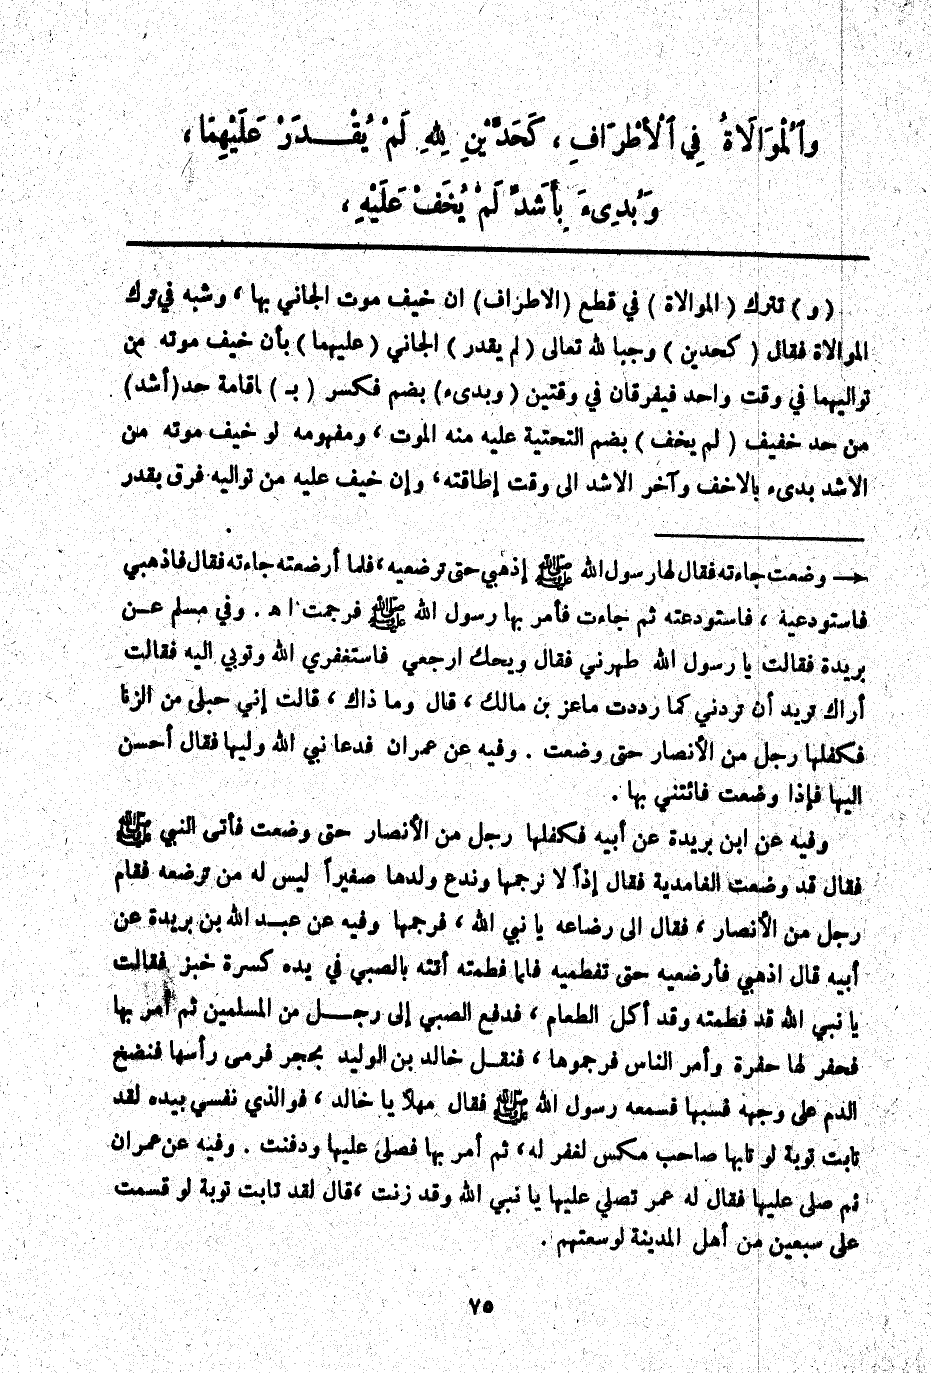 وَٱلْمُوَالَاةُ فِي ٱلْأَطْرَافِ ، كَحَدَّيْنِ لِلهِ لَمْ يُقْـدَرْ عَلَيْهِمَا ،
وَبُدِىءَ بِأَشَدَّ لَمْ يُخَفْ عَلَيْهِ ،
( و ) تترك ( الموالاة ) في قطع ( الاطراف ) ان خيف موت الجاني بها ، وشبه في ترك
الموالاة فقال ( كحدين ) وجبا لله تعالى ( لم يقدر ) الجاني ( عليهما ) بأن خيف موته من
تواليهما في وقت واحد فيفرقان في وقتين ( وبدىء ) بضم فكسر ( بـ ) اقامة حد ( أشد )
من حد خفيف ( لم يخف ) بضم التحتية عليه منه الموت ، ومفهومه لو خيف موته من
الاشد بدىء بالاخف وآخر الاشد الى وقت إطاقته ، وإن خيف عليه من تواليه فرق بقدر
وضعت جاءته فقال لها رسول الله ﷺ إذهبي حتى ترضعيه ، فلما أرضعته جاءته فقال فاذهبي
فاستودعية ، فاستودعته ثم جاءت فأمر بها رسول الله ﷺ فرجمت ا هـ . وفي مسلم عـن
بريدة فقالت يا رسول الله طهرني فقال ويحك ارجعي فاستغفري الله وتوبي اليه فقالت
أراك تريد أن تردني كما رددت ماعز بن مالك ، قال وما ذاك ، قالت إني حبلى من الزنا
فكفلها رجل من الأنصار حتى وضعت . وفيه عن عمران فدعا نبي الله وليها فقال أحسن
اليها فإذا وضعت فائتني بها .
وفيه عن ابن بريدة عن أبيه فكفلها رجل من الأنصار حتى وضعت فأتى النبي ﷺ
فقال قد وضعت الغامدية فقال إذاً لا نرجمها وندع ولدها صغيراً ليس له من ترضعه فقام
رجل من الأنصار ، فقال الى رضاعه يا نبي الله ، فرجمها وفيه عن عبـد الله بن بريدة عن
أبيه قال اذهبي فأرضعيه حتى تفطميه فلما فطمته أتته بالصبي في يده كسرة خبز فقالت
يا نبي الله قد فطمته وقد أكل الطعام ، فدفع الصبي إلى رجـل من المسلمين ثم أمر بها
فحفر لها حفرة وأمر الناس فرجموها ، فنقـل خالد بن الوليد بحجر فرمى رأسها فنضخ
الدم على وجهه فسبها فسمعه رسول الله ﷺ فقال مهلاً يا خالد ، فوالذي نفسي بيده لقد
تابت توبة لو تابها صاحب مكس لغفر له ، ثم أمر بها فصلى عليها ودفنت . وفيه عن عمران
ثم صلى عليها فقال له عمر تصلي عليها يا نبي الله وقد زنت ، قال لقد تابت توبة لو قسمت
على سبعين من أهل المدينة لوسعتهم .
٧٥